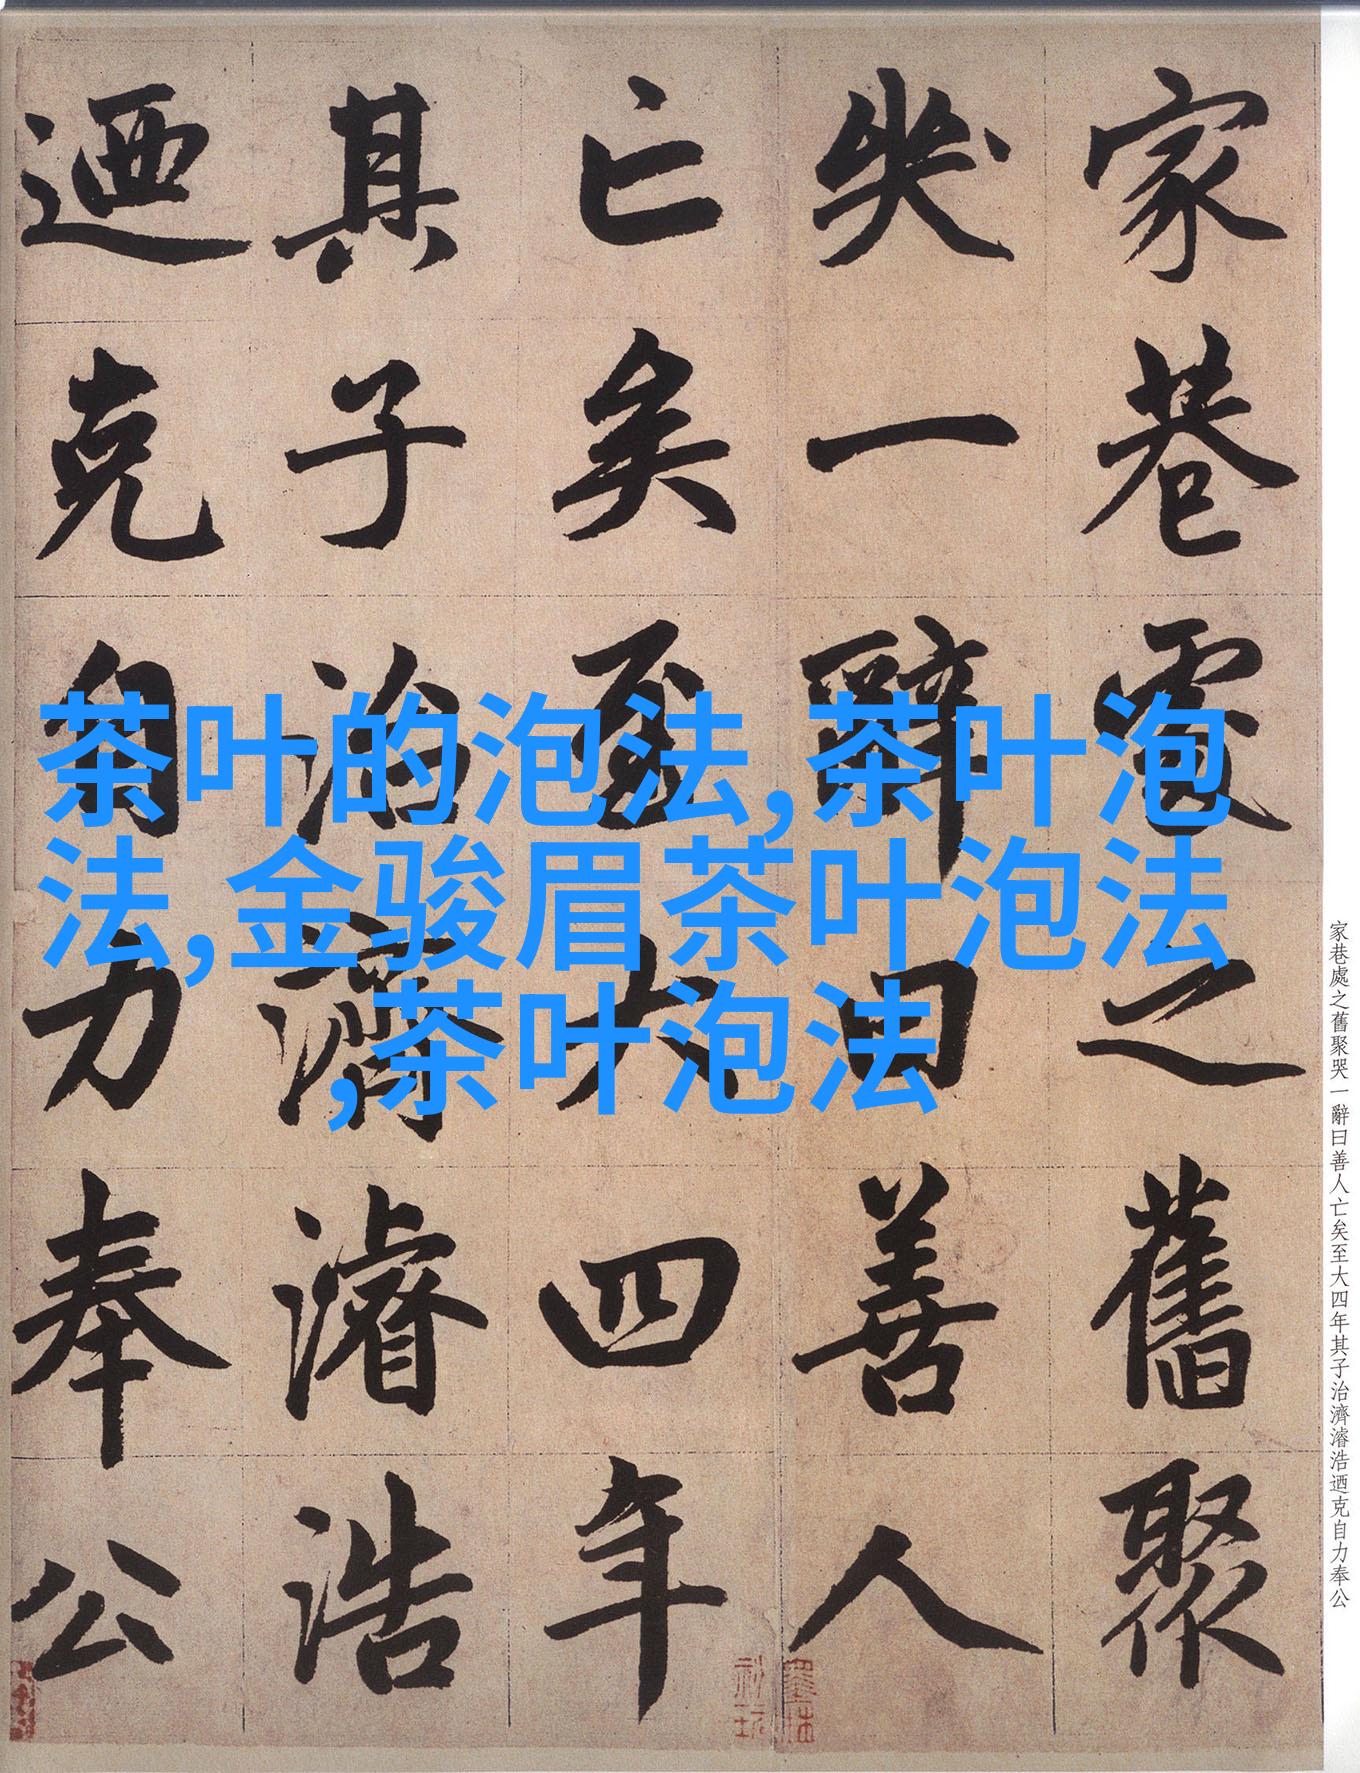 家巷處之舊聚
哭一辭曰善人
亡矣至大四年
其子治濟濬浩
迺克自力奉公
茶叶的泡法,茶叶泡
法,金骏眉茶叶泡法
,茶叶泡法
家巷處之舊聚哭一辭曰善人亡矣至大四年其子治濟濬浩迺克自力奉公